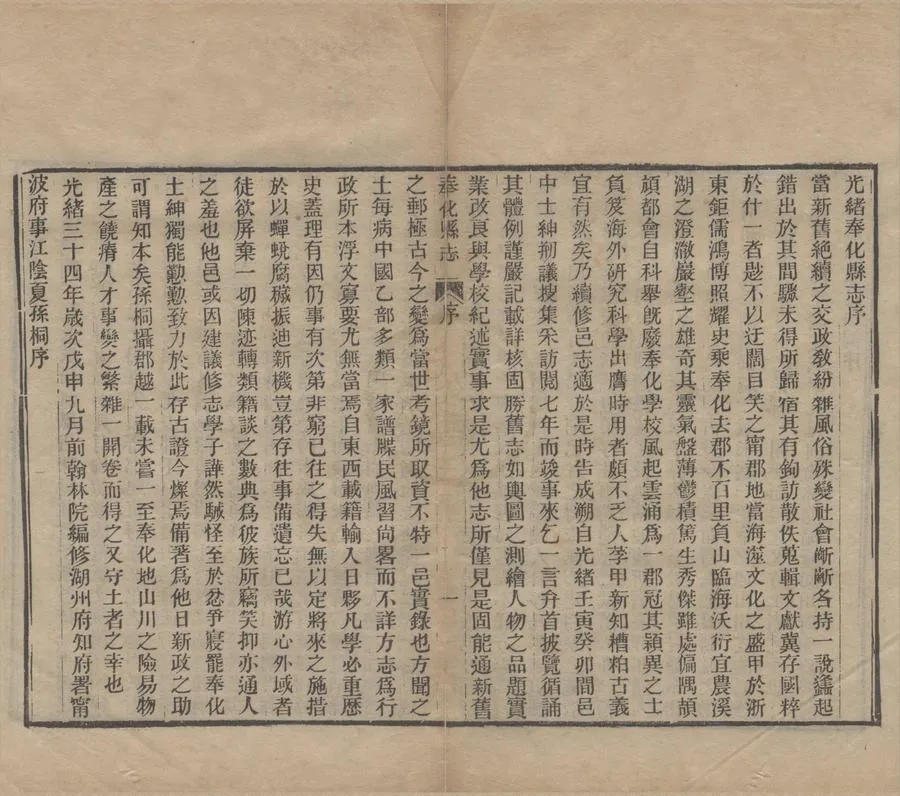 光緒奉化縣志序
當新舊絕續之交政敎紛雜風俗殊變社會齗齗各持一說蠭起
錯出於其間驟未得所歸宿其有鉤訪散佚蒐輯文獻冀存國粹
於什一者尟不以迂闊目笑之甯郡地當海澨文化之盛甲於浙
東鉅儒鴻博照耀史乘奉化去郡不百里負山臨海沃衍宜農溪
湖之澄澈巖壑之雄奇其靈氣盤薄鬱積篤生秀傑雖處偏隅頡
頏都會自科舉旣廢奉化學校風起雲涌爲一郡冠其穎異之士
負笈海外硏究科學出膺時用者頗不乏人荂甲新知糟粕古義
宜有然矣乃續修邑志適於是時告成溯自光緒壬寅癸卯間邑
中士紳剏議搜集采訪閱七年而竣事來乞一言弁首披覽循誦
其體例謹嚴記載詳核固勝舊志如輿圖之測繪人物之品題實
業改良與學校紀述實事求是尤爲他志所僅見是固能通新舊
奉化縣志 序 一
之郵極古今之變爲當世考鏡所取資不特一邑實錄也方聞之
士每病中國乙部多類一家譜牒民風習尙畧而不詳方志爲行
政所本浮文寡要尤無當焉自東西載籍輸入日夥凡學必重歷
史蓋理有因仍事有次第非窮已往之得失無以定將來之施措
於以蟬蛻腐穢振迪新機豈第存往事備遺忘已哉游心外域者
徒欲屏棄一切陳迹轉類籍談之數典爲彼族所竊笑抑亦通人
之羞也他邑或因建議修志學子譁然駴怪至於忿爭寢罷奉化
士紳獨能懃懃致力於此存古證今燦焉備著爲他日新政之助
可謂知本矣孫桐攝郡越一載未嘗一至奉化地山川之險易物
產之饒瘠人才事變之繁雜一開卷而得之又守土者之幸也
光緒三十四年歲次戊申九月前翰林院編修湖州府知府署甯
波府事江陰夏孫桐序